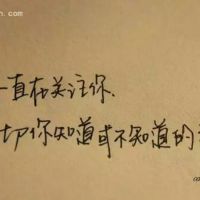 一直在关注你、
切你知道或不知道的